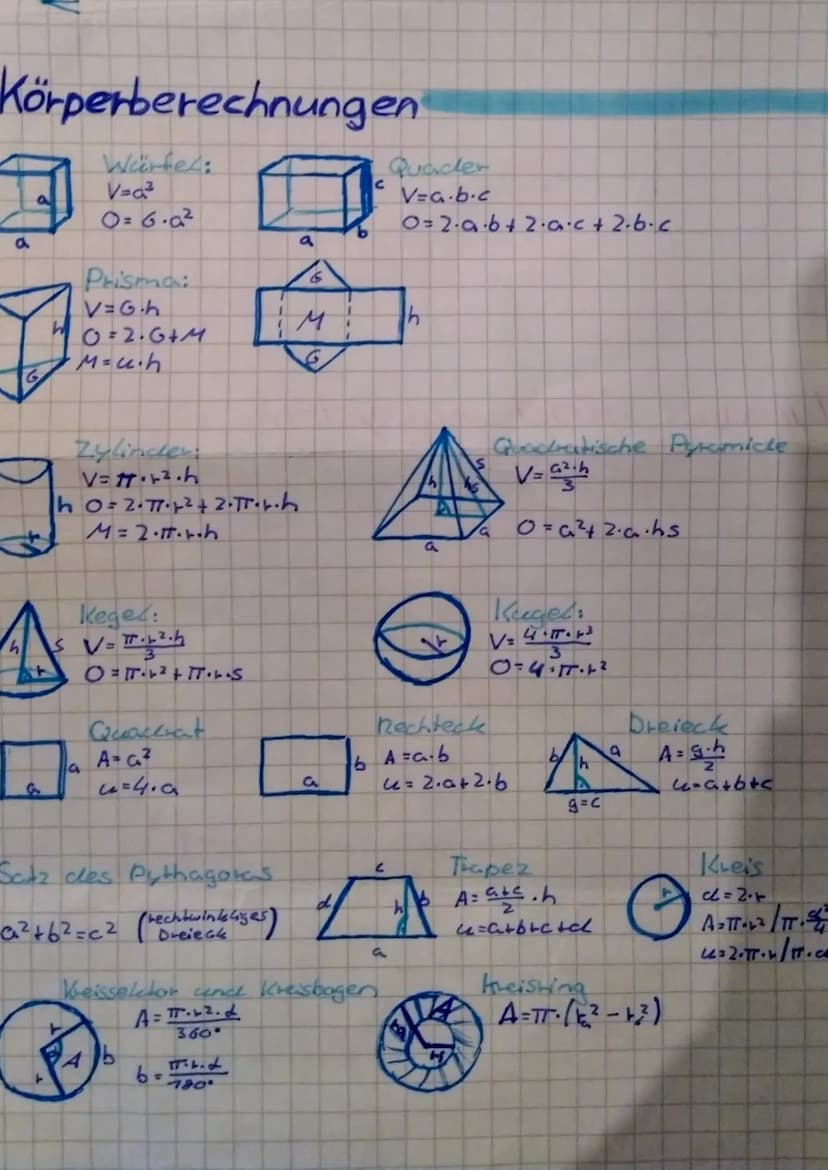 Körperberechnungen
Würfel:
V=a³
O=6·a²
a
a
Quader
V=a·b·c
O=2·a·b+2·a·c+2·b·c
c
a
b
Prisma:
V=G·h
O=2·G+M
M=u·h
h
G
G
M
h
G
Zylinder:
V=π·r²·h
O=2·π·r²+2·π·r·h
M=2·π·r·h
h
r
Quadratische Pyramide
V=a²·h/3
O=a²+2·a·hs
h
hs
s
a
a
Kegel:
V=π·r²·h/3
O=π·r²+π·r·s
h
s
r
Kugel:
V=4·π·r³/3
O=4·π·r²
r
Quadrat
A=a²
u=4·a
a
a
Rechteck
A=a·b
u=2·a+2·b
b
a
Dreieck
A=g·h/2
u=a+b+c
b
h
a
g=c
Satz des Pythagoras
a²+b²=c² (rechtwinkliges
Dreieck)
Trapez
A=a+c/2·h
u=a+b+c+d
c
d
h
b
a
Kreis
d=2·r
A=π·r²/π·d²/4
u=2·π·r/π·d
r
Kreissektor und Kreisbogen
A=π·r²·α/360°
b=π·r·α/180°
r
A
b
r
Kreisring
A=π·(rₐ²-rᵢ²)